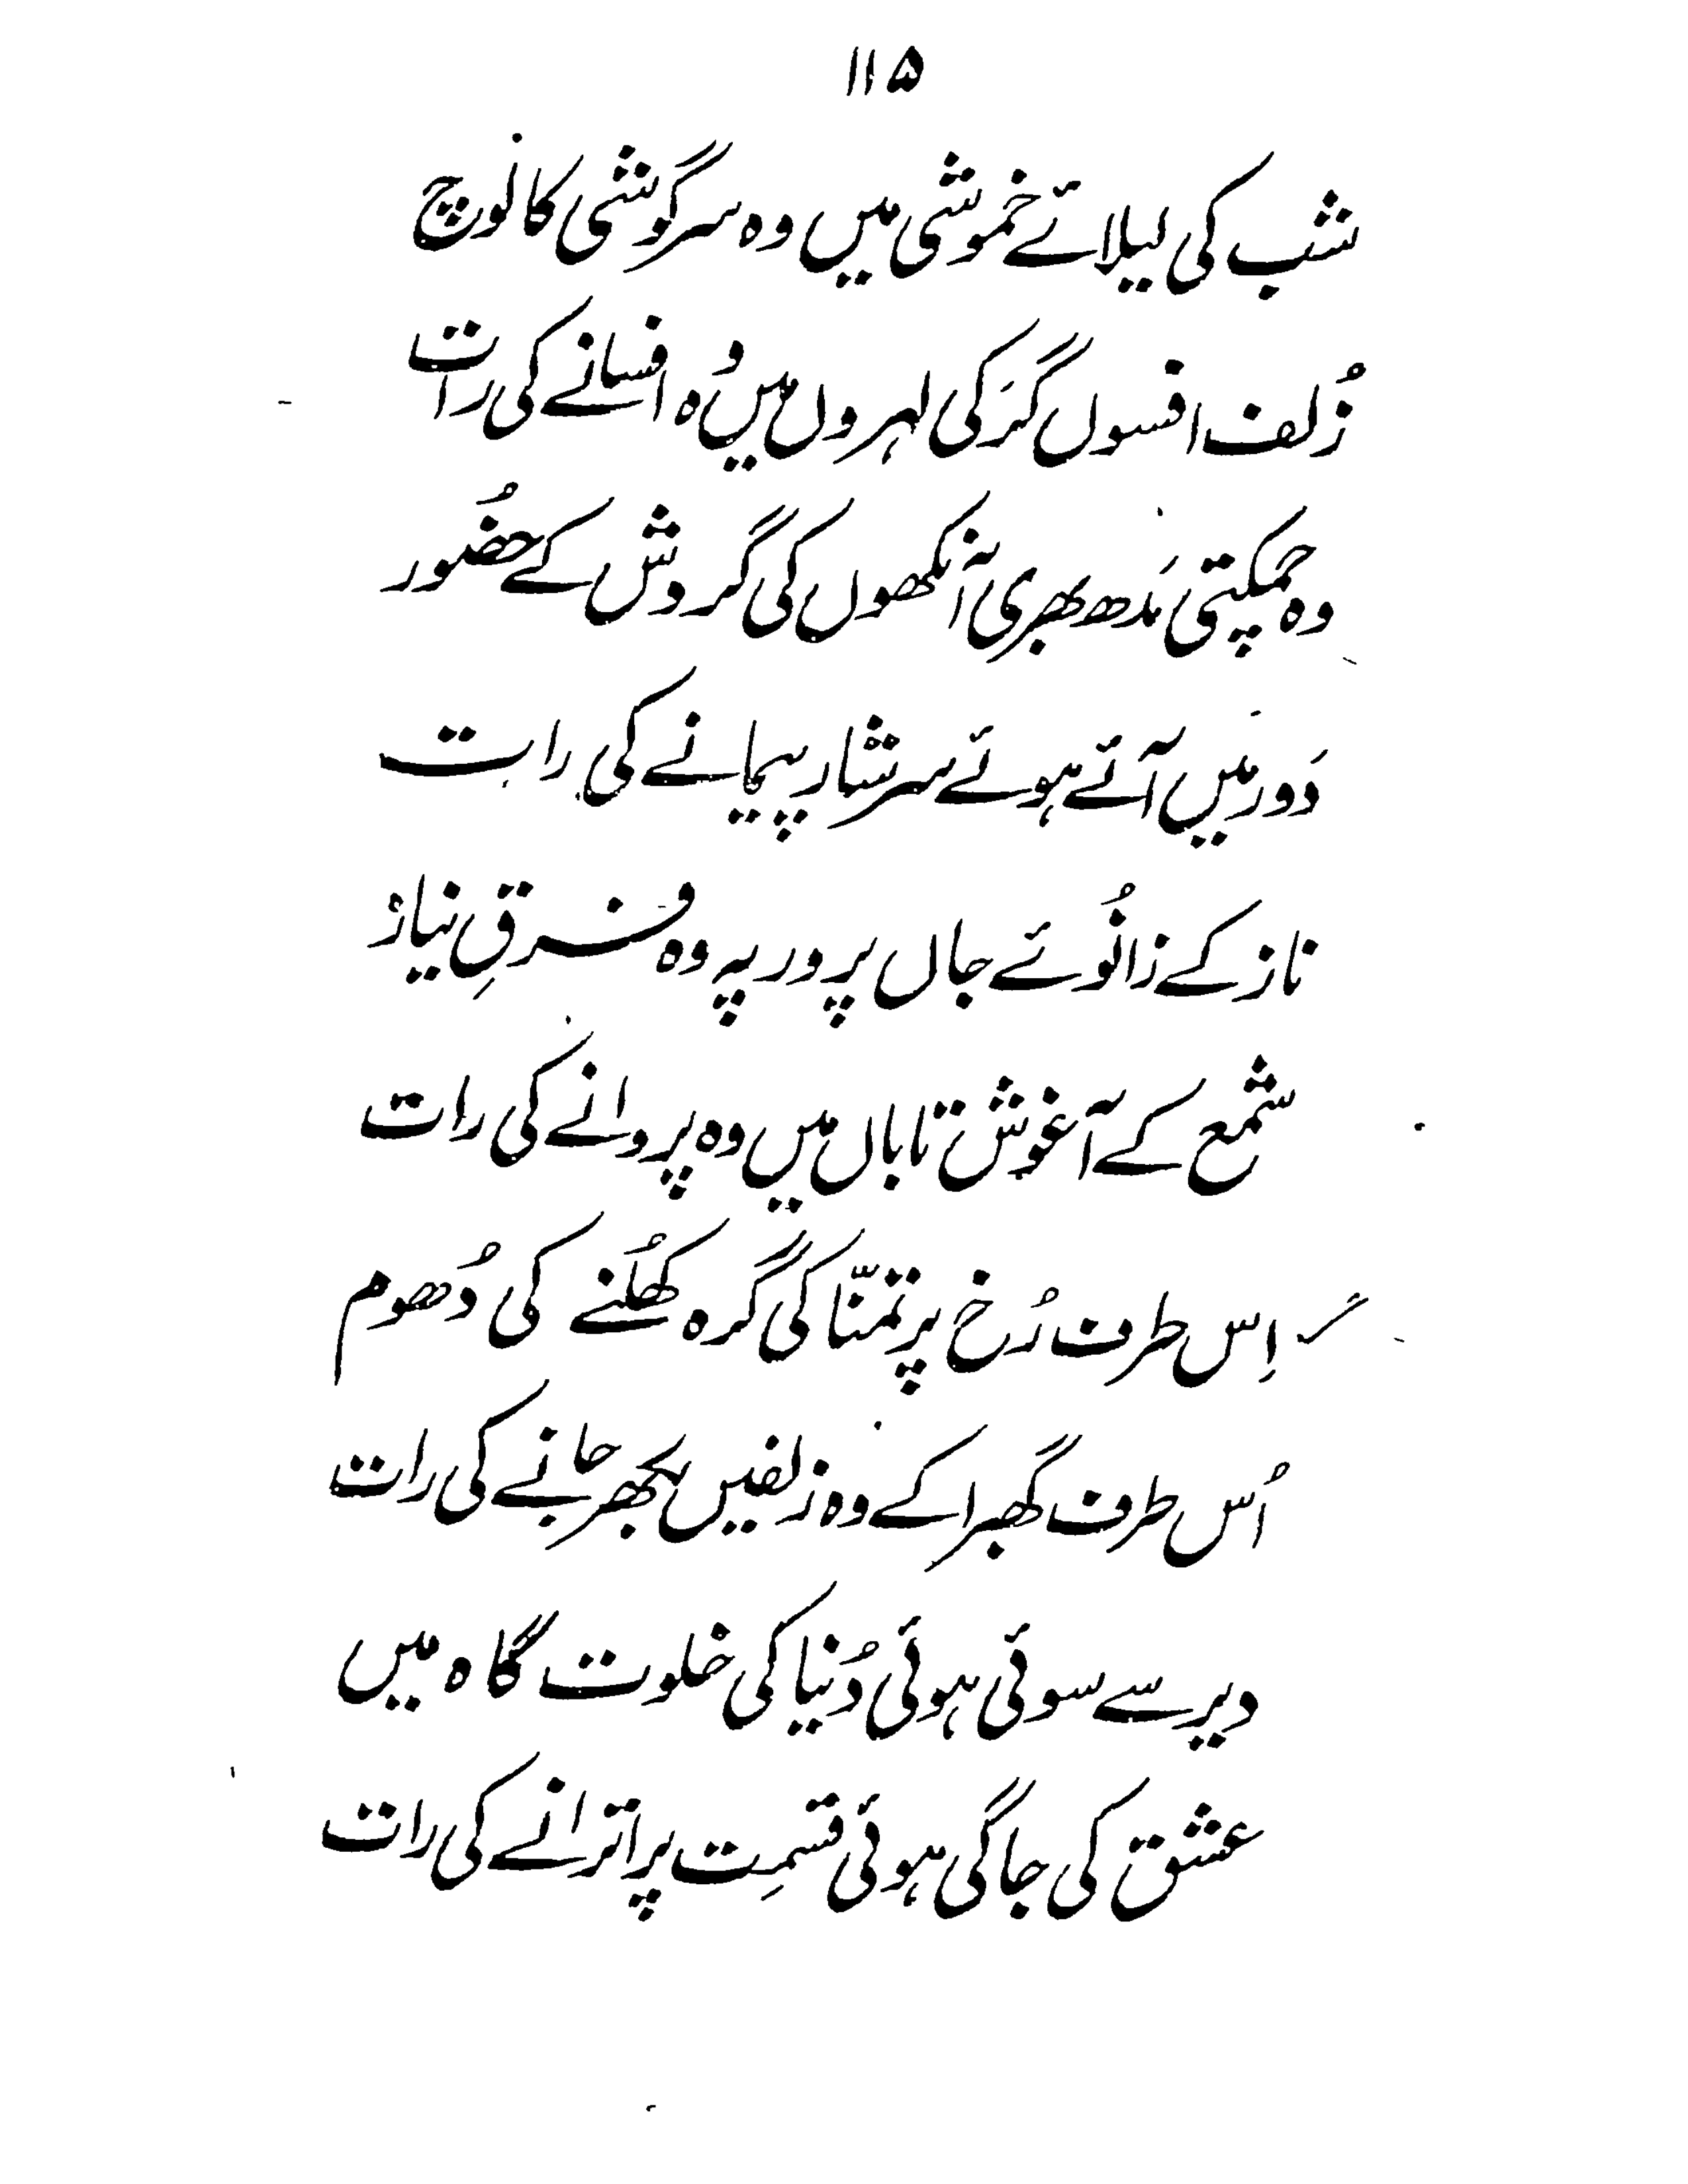 ۱۱۵
شب کی لیلائے خموشی میں وہ سرگوشی کا لوچ
زُلف افسوں گر کی لہروں میں وُہ افسانے کی رات
وہ چمکتی مَدھ بھری آنکھوں کی گردش کے حضُور
دَور میں آتے ہوئے سرشار پیمانے کی رات
ناز کے زانُوئے جاں پرور پہ وہ فرقِ نیاز
شمع کے آغوش تاباں میں وہ پروانے کی رات
اِس طرف رُخ پر تمنّا کی گرہ کھُلنے کی دُھوم
اُس طرف گھبرا کے وہ زلفیں بکھر جانے کی رات
دیر سے سوئی ہوئی دُنیا کی خلوت گاہ میں
عشق کی جاگی ہوئی قسمِت پر اترانے کی رات